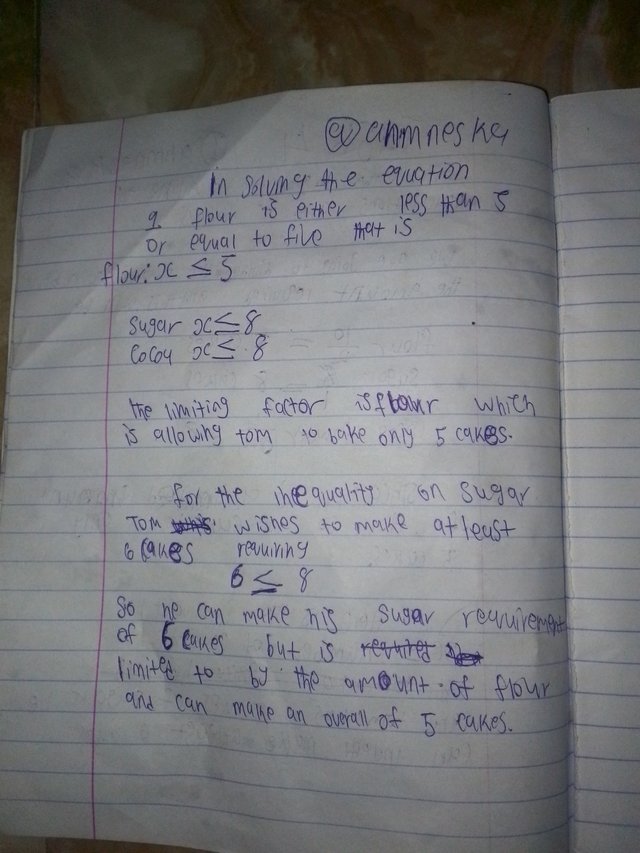 @anmneska
In solving the equation
q flour is either less than 5
or equal to five that is
flour: x ≤ 5
Sugar x ≤ 8
Cocoa x ≤ 8
the limiting factor is flour which
is allowing tom to bake only 5 cakes.
for the inequality on sugar
Tom wishes to make atleast
6 cakes requiring
6 ≤ 8
So he can make his sugar requirement
of 6 cakes but is
limited to by the amount of flour
and can make an overall of 5 cakes.